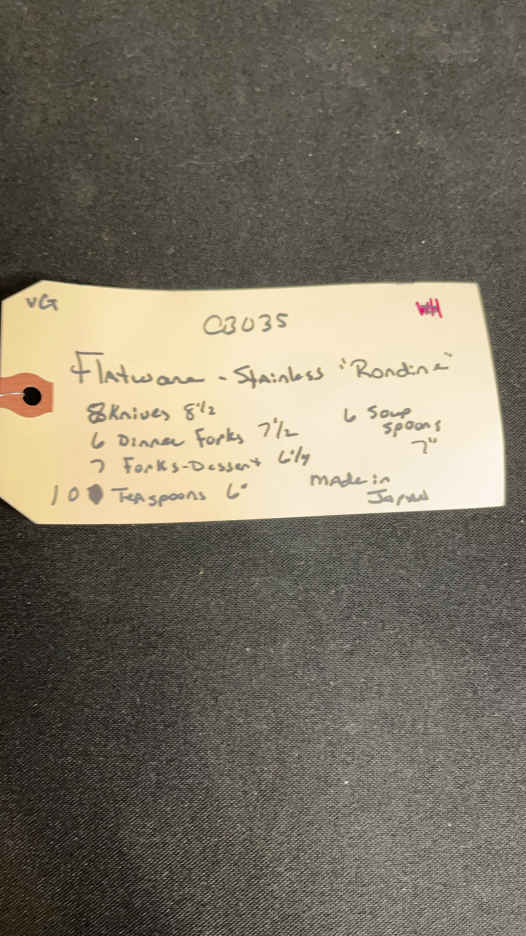 VG
WH
C3035
Flatware - Stainless "Rondine"
8 Knives 8 1/2
6 Dinner Forks 7 1/2
7 Forks-Dessert 6 1/4
10 Teaspoons 6"
6 Soup
spoons
7"
made in
Japan